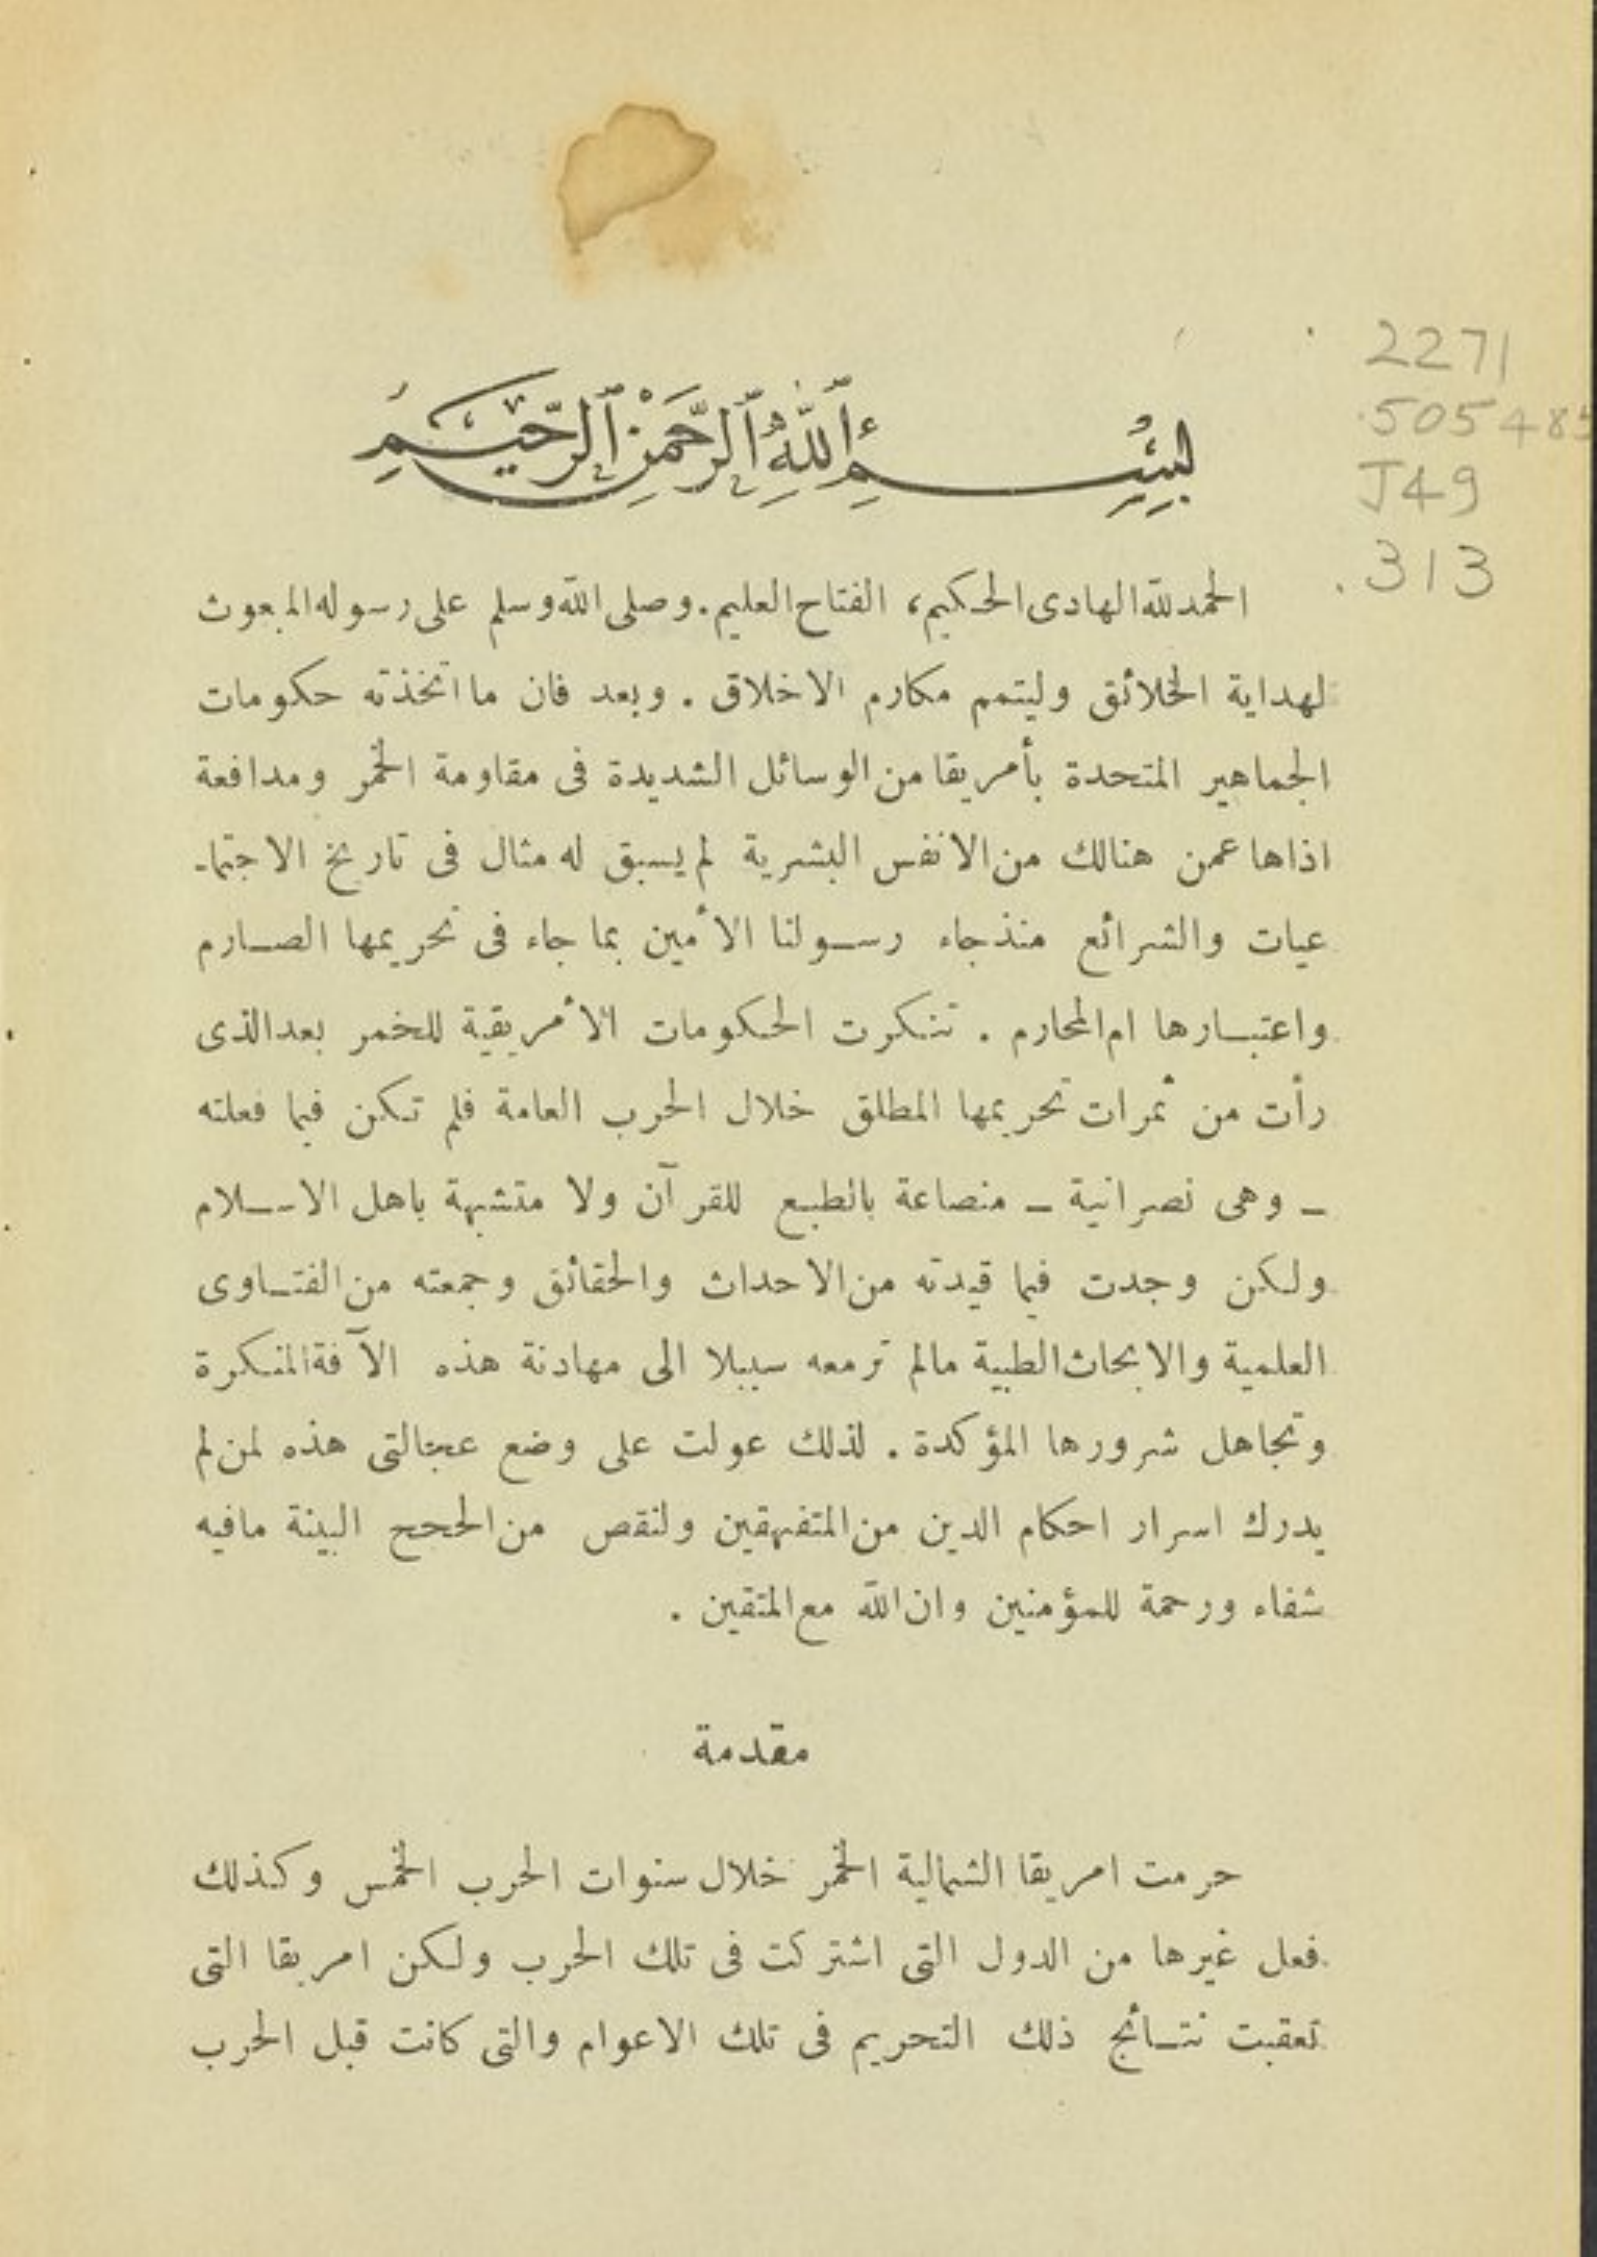 بِسْمِ ٱللَّهِ ٱلرَّحْمَنِ ٱلرَّحِيمِ
2271
.505485
J49
.313
الحمد لله الهادى الحكيم، الفتاح العليم. وصلى الله وسلم على رسوله المبعوث
لهداية الخلائق وليتمم مكارم الاخلاق . وبعد فان ما اتخذته حكومات
الجماهير المتحدة بأمريقا من الوسائل الشديدة فى مقاومة الخمر ومدافعة
اذاها عمن هنالك من الانفس البشرية لم يسبق له مثال فى تاريخ الاجتما-
عيات والشرائع منذ جاء رسولنا الأمين بما جاء فى تحريمها الصارم
واعتبارها ام المحارم . تنكرت الحكومات الأمريقية للخمر بعد الذى
رأت من ثمرات تحريمها المطلق خلال الحرب العامة فلم تكن فيما فعلته
ـ وهى نصرانية ـ منصاعة بالطبع للقرآن ولا متشبهة باهل الاسلام
ولكن وجدت فيما قيدته من الاحداث والحقائق وجمعته من الفتاوى
العلمية والابحاث الطبية مالم تر معه سبيلا الى مهادنة هذه الآفة المنكرة
وتجاهل شرورها المؤكدة . لذلك عولت على وضع عجالتى هذه لمن لم
يدرك اسرار احكام الدين من المتفيهقين ولنقص من الحجج البينة مافيه
شفاء ورحمة للمؤمنين وان الله مع المتقين .
مقدمة
حرمت امريقا الشمالية الخمر خلال سنوات الحرب الخمس وكذلك
فعل غيرها من الدول التى اشتركت فى تلك الحرب ولكن امريقا التى
تعقبت نتائج ذلك التحريم فى تلك الاعوام والتى كانت قبل الحرب